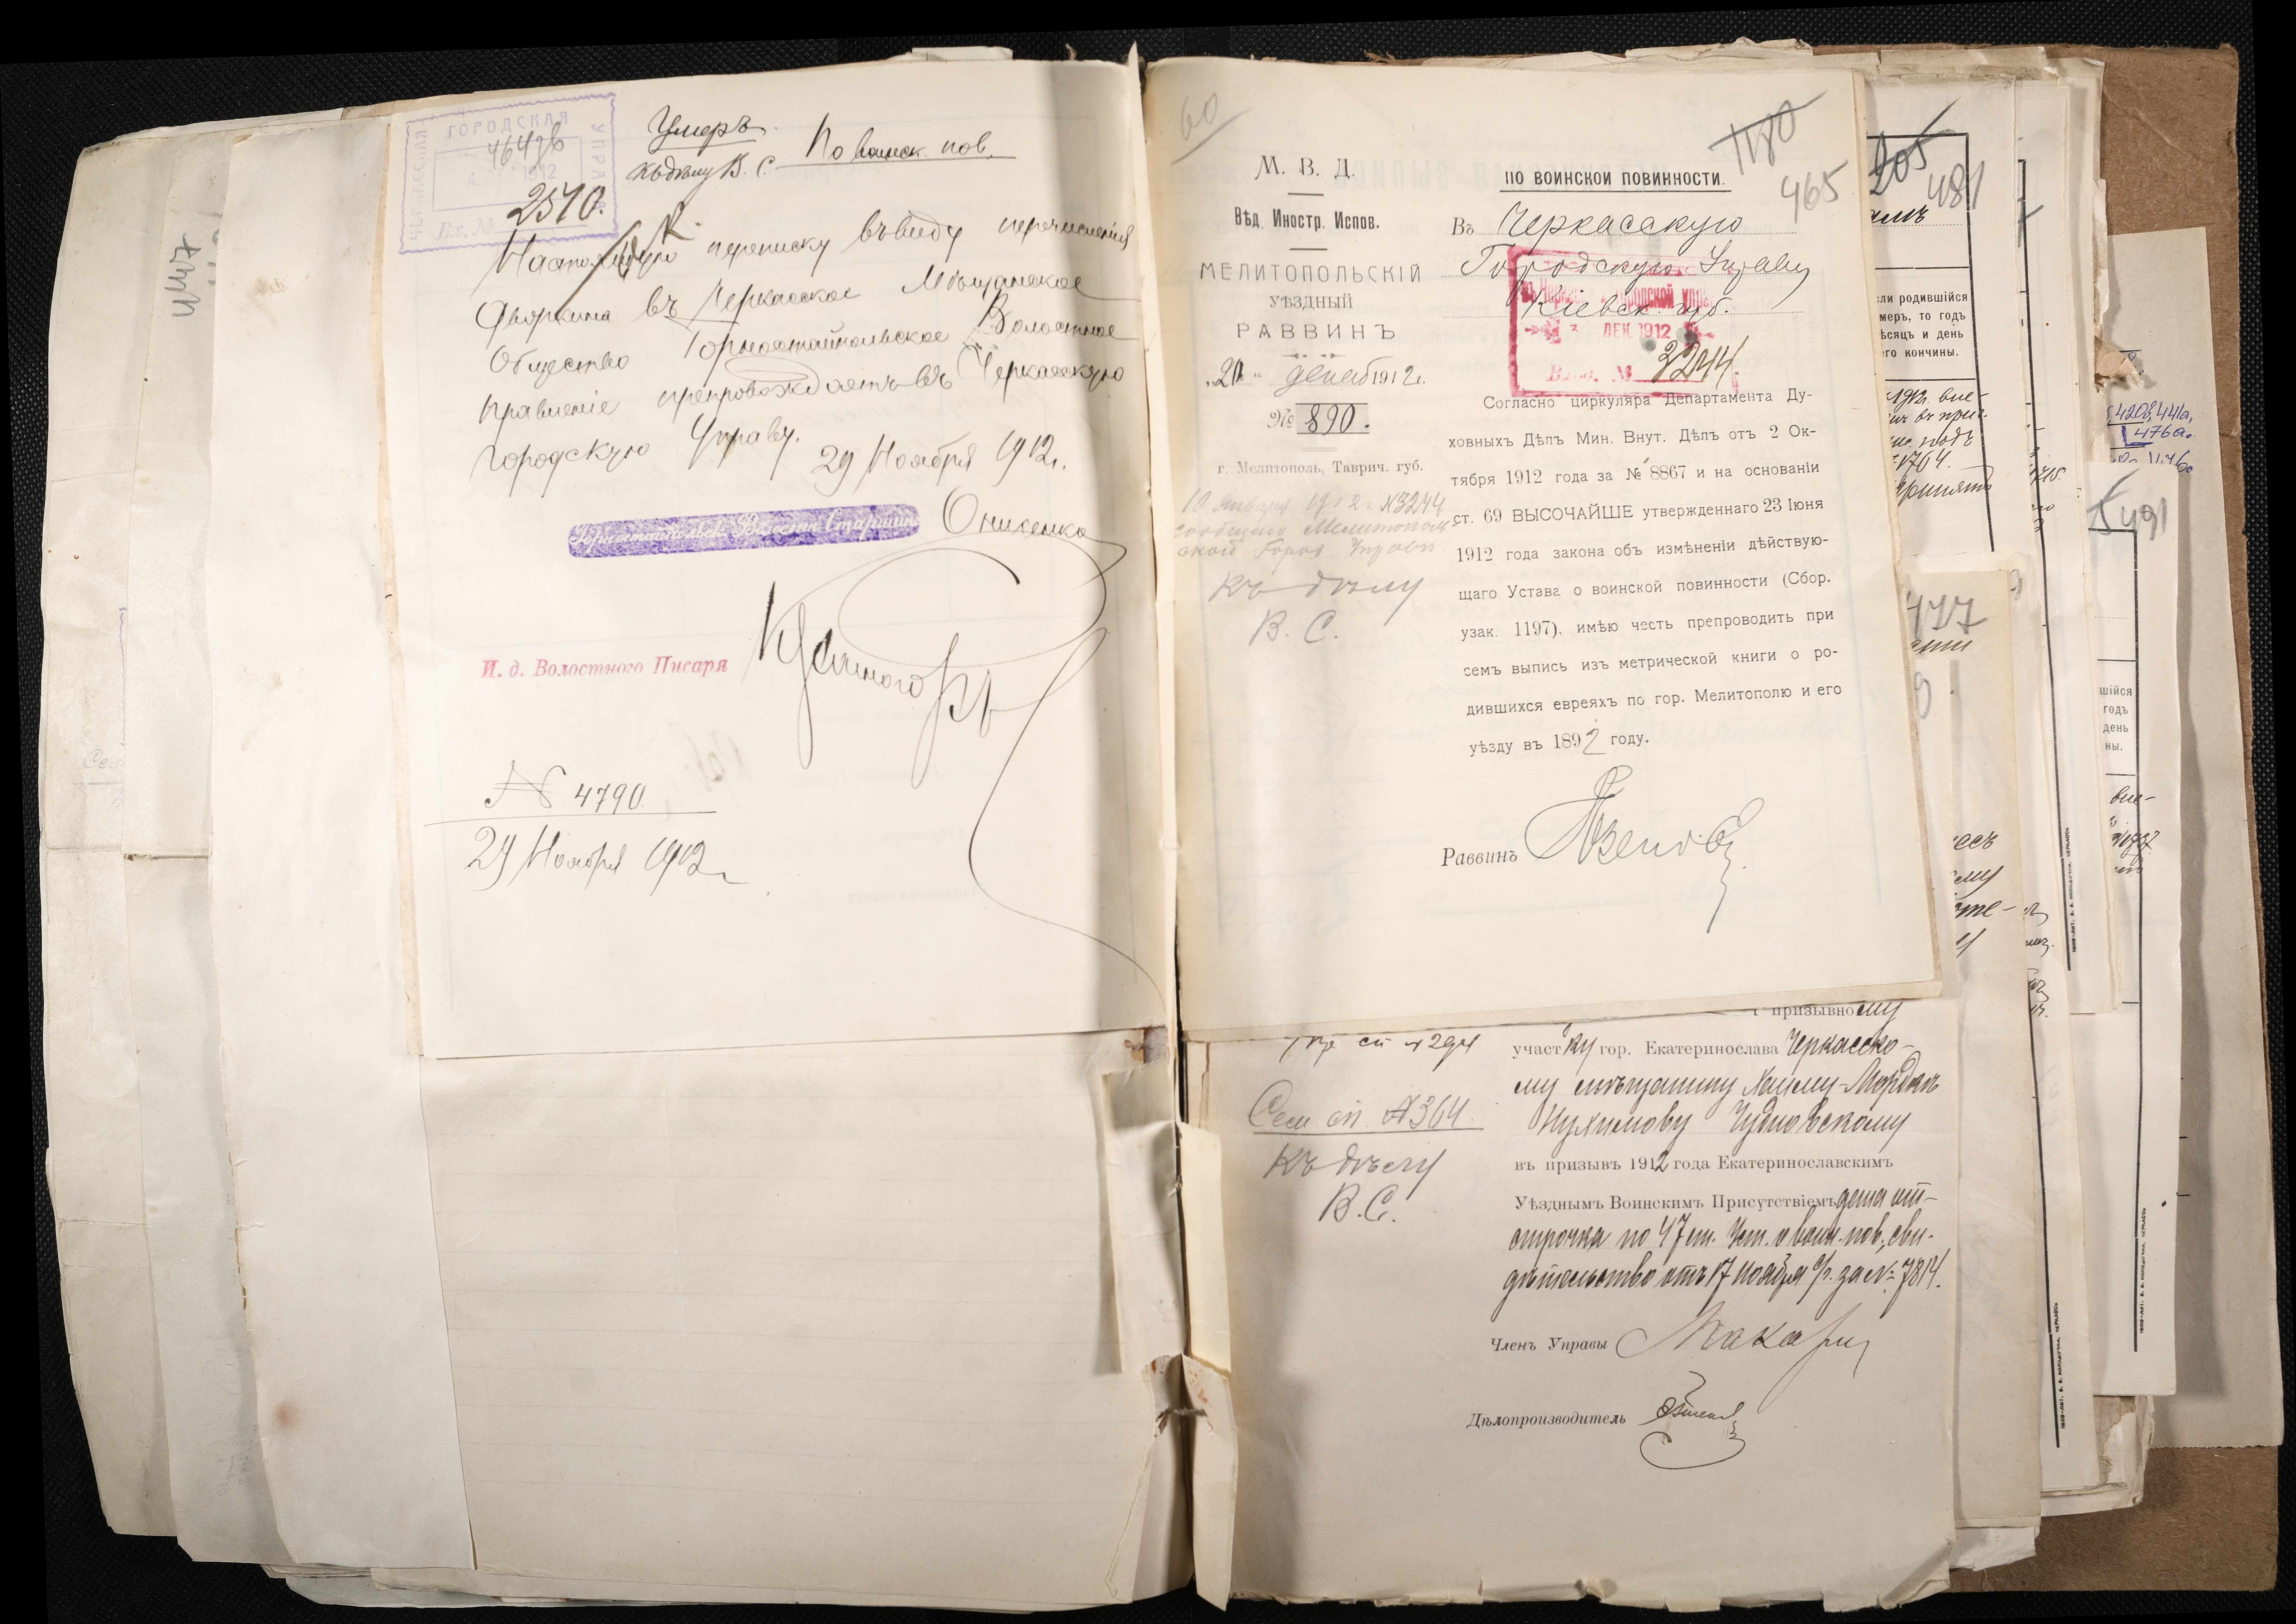 ГОРОДСКАЯ
ЧЕРКАССКАЯ
УПРА
Вх. №
2510.
Умеръ
къ дѣлу В. С.
По воинск. пов.
Настоящую переписку въ виду перечисленія
въ Черкасское Мѣщанское
Общество Горностайпольское Волостное
Правленіе препровождаетъ въ Черкасскую
Городскую Управу.
29 Ноября 1912 г.
Горностайпольск. Волостн. Старшина
Онисенко
И. д. Волостного Писаря
№ 4790.
29 Ноября 1912 г.
4447
60
М. В. Д.
Вѣд. Иностр. Испов.
МЕЛИТОПОЛЬСКІЙ
УѢЗДНЫЙ
РАВВИНЪ
„20“ декаб 1912 г.
№ 890.
г. Мелитополь, Таврич. губ.
10 Января 1912 г. № 3244
сообщено Мелитополь
ской Город Управы
къ дѣлу
В. С.
1180
465
ПО ВОИНСКОЙ ПОВИННОСТИ.
Въ Черкасскую
Городскую Управу
Кіевск. губ.
ДЕК 1912
3244
Согласно циркуляра Департамента Ду-
ховныхъ Дѣлъ Мин. Внут. Дѣлъ отъ 2 Ок-
тября 1912 года за № 8867 и на основаніи
ст. 69 ВЫСОЧАЙШЕ утвержденнаго 23 Іюня
1912 года закона объ измѣненіи дѣйствую-
щаго Устава о воинской повинности (Сбор.
узак. 1197), имѣю честь препроводить при
семъ выпись изъ метрической книги о ро-
дившихся евреяхъ по гор. Мелитополю и его
уѣзду въ 1892 году.
Раввинъ
призывному
участку гор. Екатеринослава Черкасско-
му мѣщанину Хаиму-Мордку
Нухимову Чудновскому
въ призывъ 1912 года Екатеринославскимъ
Уѣзднымъ Воинскимъ Присутствіемъ дана от-
срочка по 47 ст. Уст. о воин. пов., сви-
дѣтельство отъ 17 ноября с/г. за № 7814.
Сем сп. № 364.
Къ дѣлу
В. С.
Членъ Управы
Дѣлопроизводитель
205
481
ли родившійся
меръ, то годъ
ѣсяцъ и день
его кончины.
1764.
477
420а, 441а,
476а.
491
шійся
годъ
день
ны.